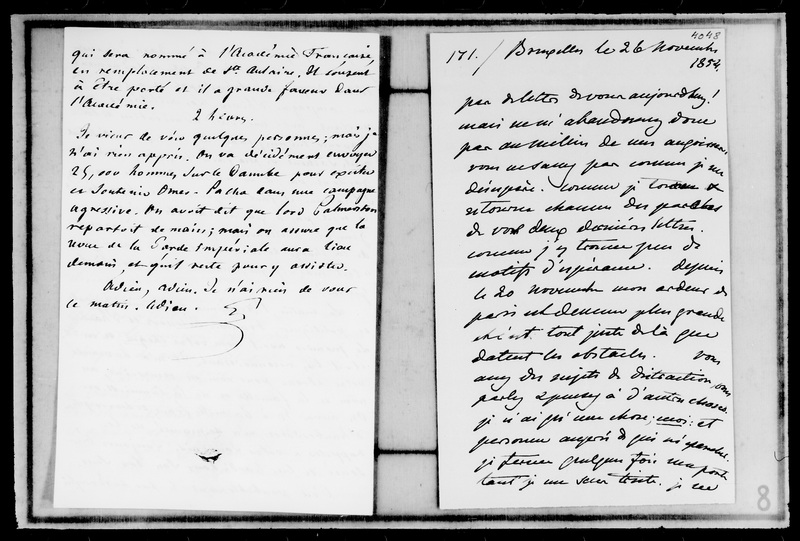 qui sera nommé à l'Académie Française,
en remplacement de St Aulaire. Il consent
à être porté et il a grande faveur dans
l'Académie.
2 heures.
Je viens de voir quelques personnes; mais je
n'ai rien appris. On va décidément envoyer
25,000 hommes sur le Danube pour exciter
et soutenir Omer-Pacha dans une campagne
agressive. On avoit dit que lord Palmerston
repartoit demain; mais on assure que la
revue de la Garde Impériale aura lieu
demain, et qu'il reste pour y assister.
Adieu, adieu. Je n'ai rien de vous
ce matin. Adieu. G
4048
171./ Bruxelles le 26 Novembre
1854.
pas de lettre de vous aujourd'huy!
mais ne m'abandonnez donc
pas au milieu de mes angoisses
vous ne savez pas comme je me
désespère. comme je tourne &
retourne chacune des paroles
de vos deux dernières lettres.
comme j'y trouve peu de
motifs d'espérance. depuis
le 20 Novembre mon ardeur de
paris est devenue plus grande
et c'est tout juste de là que
datent les obstacles. vous
avez des sujets de distraction, vous
parlez & pensez à d'autres choses
je n'ai qu'une chose, moi; et
personne auprès de qui m'épancher.
je ferme quelques fois ma porte
tant je me sens triste. je ne
8